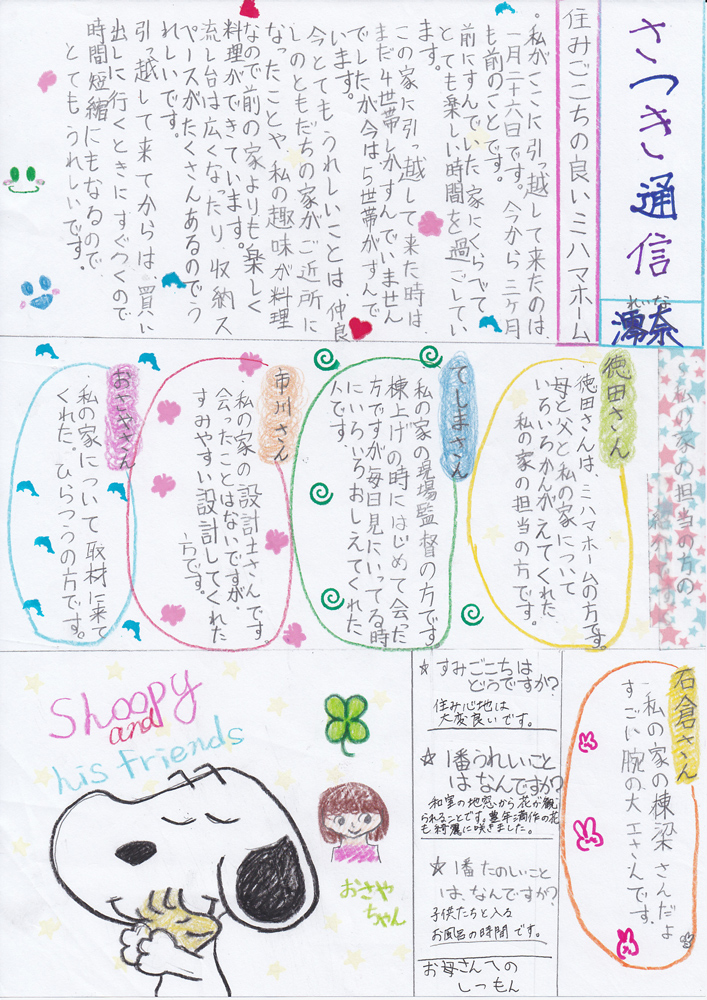 さつき通信
れいな
澪奈
住みごこちの良いミハマホーム
・私がここに引っ越して来たのは、
一月二十六日です。今から三ヶ月
も前のことです。
前にすんでいた家にくらべて
とても楽しい時間を過ごしてい
ます。
この家に引っ越して来た時は、
まだ4世帯しかすんでいません
でしたが今は5世帯がすんで
います。
今とてもうれしいことは、仲良
しのともだちの家がご近所に
なったことや私の趣味が料理
なので前の家よりも楽しく
料理ができています。
流し台は広くなったり、収納ス
ペースがたくさんあるのでう
れしいです。
引っ越して来てからは、買い
出しに行くときにすぐつくので
時間短縮にもなるので、
とてもうれしいです。
私の家の担当の方の
紹介です
徳田さん
・徳田さんは、ミハマホームの方です。
母と父と私の家について
いろいろかんがえてくれた
私の家の担当の方です。
てしまさん
私の家の現場監督の方です
棟上げの時にはじめて会った
方ですが毎日見にいってる時
にいろいろおしえてくれた
人です。
市川さん
・私の家の設計士さんです
会ったことはないですが、
すみやすい設計してくれた
方です。
おさやさん
・私の家について取材に来て
くれた。ひらつうの方です。
石倉さん
・私の家の棟梁さんだよ
すごい腕の大工さんです。
☆すみごこちは
どうですか?
住み心地は
大変良いです。
☆1番うれしいこと
はなんですか?
和室の地窓から花が観
られることです。豊年満作の花
も綺麗に咲きました。
☆1番たのしいこと
は、なんですか?
子供たちと入る
お風呂の時間です。
お母さんへの
しつもん
Snoopy
and
his friends
おさや
ちゃん